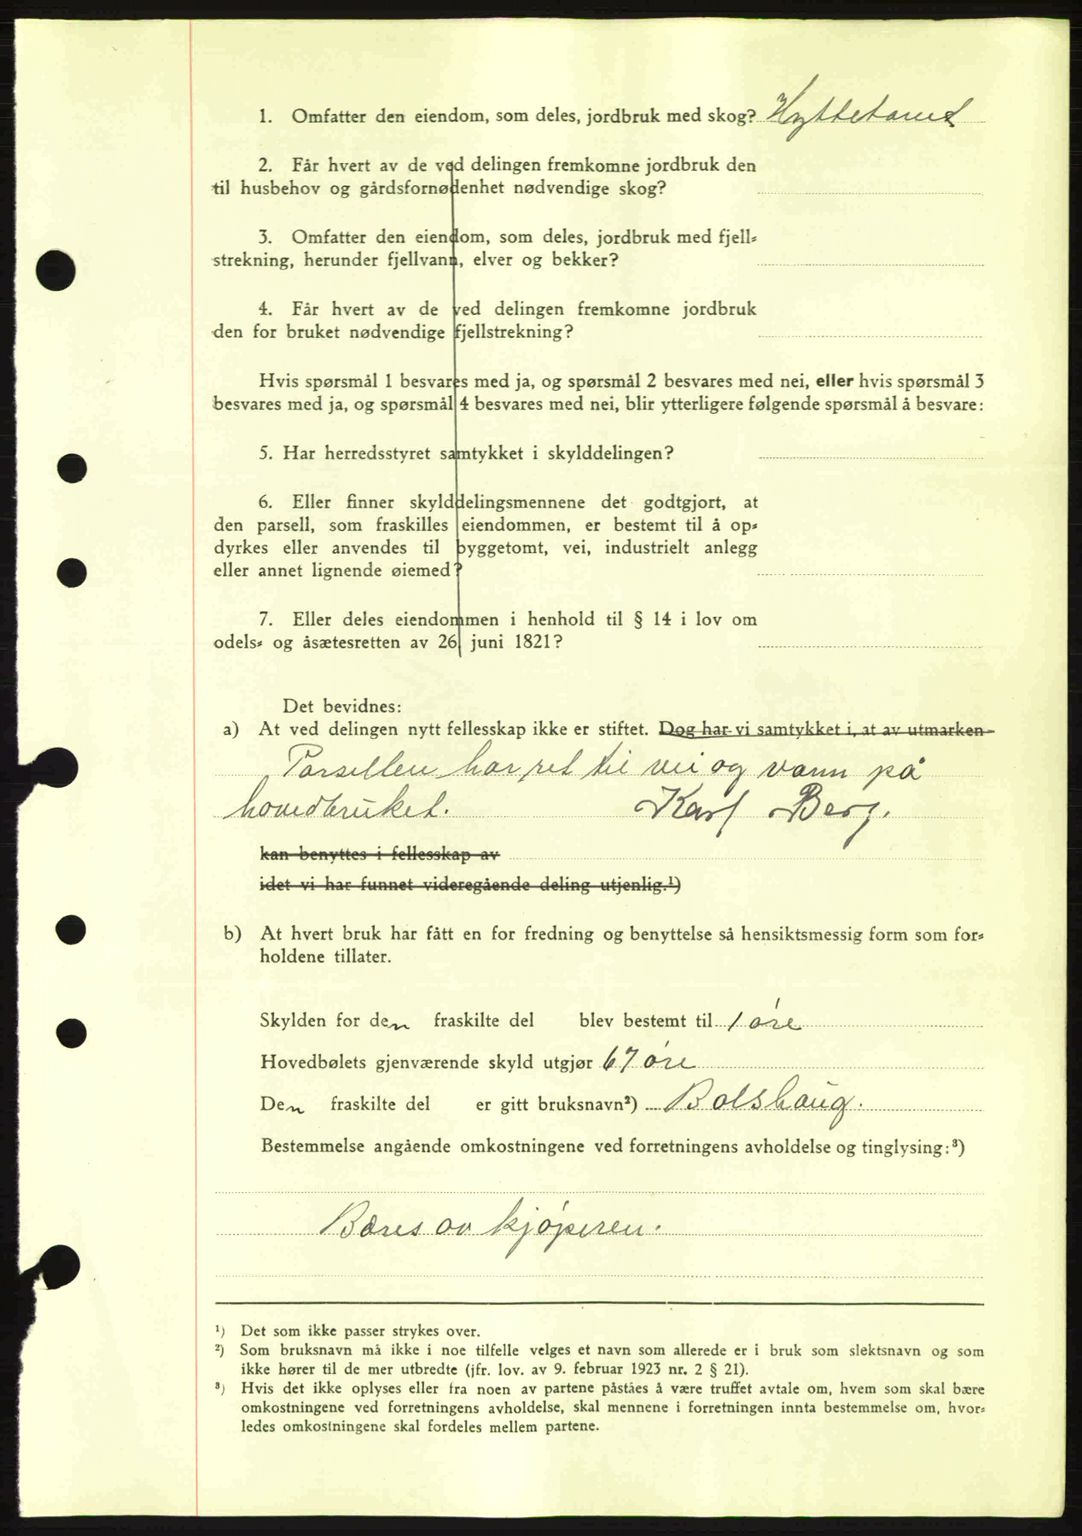 1. Omfatter den eiendom, som deles, jordbruk med skog? Hyttetomt
2. Får hvert av de ved delingen fremkomne jordbruk den
til husbehov og gårdsfornødenhet nødvendige skog?
3. Omfatter den eiendom, som deles, jordbruk med fjell-
strekning, herunder fjellvann, elver og bekker?
4. Får hvert av de ved delingen fremkomne jordbruk
den for bruket nødvendige fjellstrekning?
Hvis spørsmål 1 besvares med ja, og spørsmål 2 besvares med nei, eller hvis spørsmål 3
besvares med ja, og spørsmål 4 besvares med nei, blir ytterligere følgende spørsmål å besvare:
5. Har herredsstyret samtykket i skylddelingen?
6. Eller finner skylddelingsmennene det godtgjort, at
den parsell, som fraskilles eiendommen, er bestemt til å op-
dyrkes eller anvendes til byggetomt, vei, industrielt anlegg
eller annet lignende øiemed?
7. Eller deles eiendommen i henhold til § 14 i lov om
odels- og åsætesretten av 26 juni 1821?
Det bevidnes:
a) At ved delingen nytt fellesskap ikke er stiftet. Dog har vi samtykket i, at av utmarken
Parsellen har ret til vei og vann på
hovedbruket. Karl Berg.
kan benyttes i fellesskap av
idet vi har funnet videregående deling utjenlig.¹)
b) At hvert bruk har fått en for fredning og benyttelse så hensiktsmessig form som for-
holdene tillater.
Skylden for den fraskilte del blev bestemt til 1 øre
Hovedbølets gjenværende skyld utgjør 67 øre
Den fraskilte del er gitt bruksnavn²) Bolshaug.
Bestemmelse angående omkostningene ved forretningens avholdelse og tinglysing:³)
Bæres av kjøperen.
¹) Det som ikke passer strykes over.
²) Som bruksnavn må ikke i noe tilfelle velges et navn som allerede er i bruk som slektsnavn og som
ikke hører til de mer utbredte (jfr. lov. av 9. februar 1923 nr. 2 § 21).
³) Hvis det ikke oplyses eller fra noen av partene påståes å være truffet avtale om, hvem som skal bære
omkostningene ved forretningens avholdelse, skal mennene i forretningen innta bestemmelse om, hvor-
ledes omkostningene skal fordeles mellem partene.